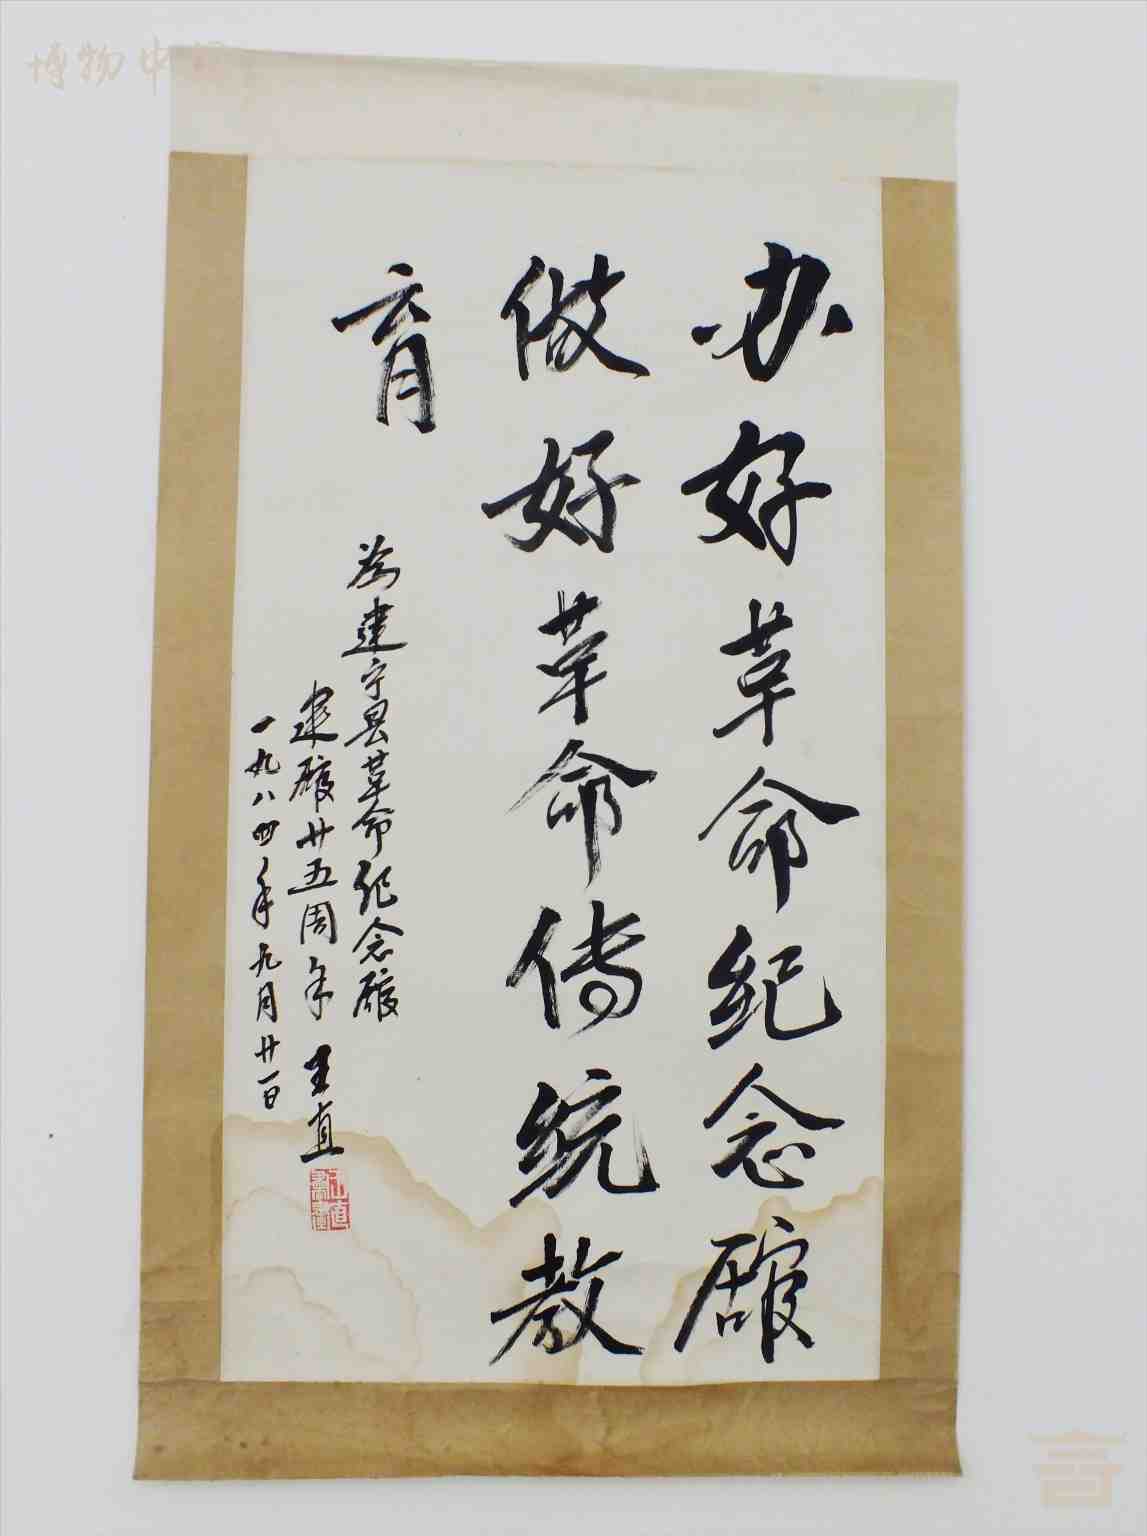 办好革命纪念馆
做好革命传统教
育
为建宁县革命纪念馆
建馆廿五周年 王直
一九八四年九月廿一日
王直
博物中